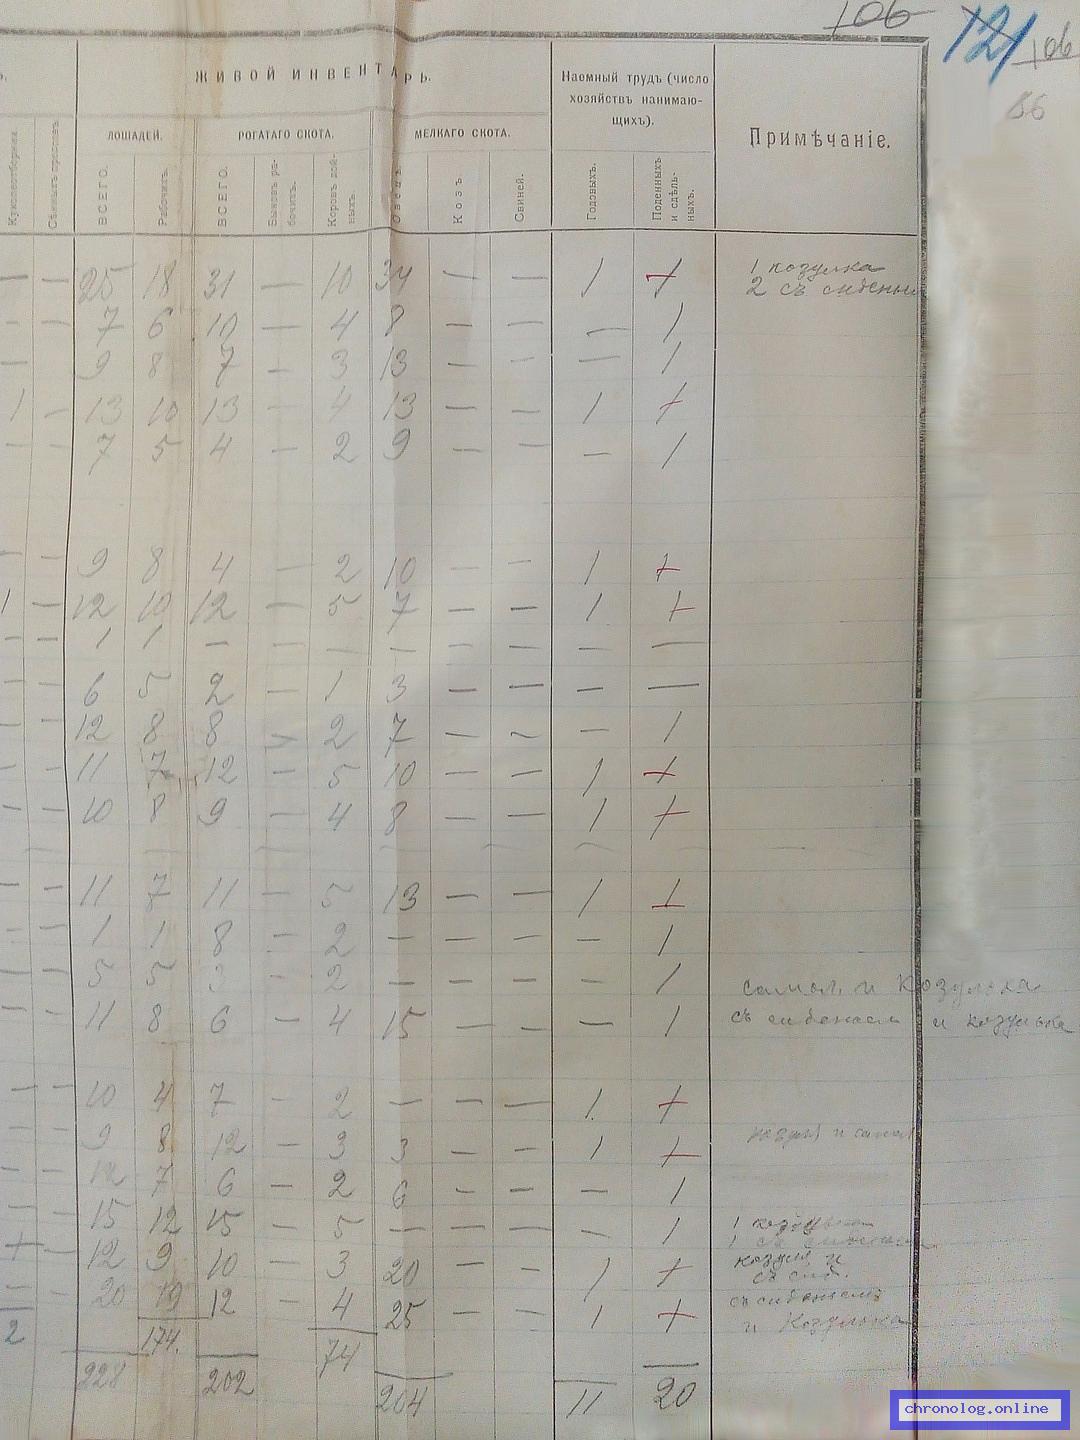 106
121 106
86
ЖИВОЙ ИНВЕНТАРЬ.
Наемный трудъ (число
хозяйствъ нанимаю-
щихъ).
Примѣчаніе.
ЛОШАДЕЙ. РОГАТАГО СКОТА. МЕЛКАГО СКОТА.
ВСЕГО. Рабочихъ. ВСЕГО. Быковъ ра-бочихъ. Коровъ дой-ныхъ. Овецъ. Козъ Свиней. Годовыхъ. Поденныхъ и сдѣль-ныхъ.
— — 25 18 31 — 10 34 — — 1 + 1 козулка
2 съ сиденьи
— — 7 6 10 — 4 8 — — — 1
— 9 8 7 — 3 13 — — — 1
1 — 13 10 13 — 4 13 — — 1 +
— — 7 5 4 — 2 9 — — — 1
— — 9 8 4 — 2 10 — — 1 +
1 — 12 10 12 — 5 7 — — 1 +
— — 1 1 — — — — — — — —
— — 6 5 2 — 1 3 — — — —
— — 12 8 8 — 2 7 — — — 1
— — 11 7 12 — 5 10 — — 1 +
— — 10 8 9 — 4 8 — — 1 +
— — 11 7 11 — 5 13 — — 1 +
— — 1 1 8 — 2 — — — — 1
— — 5 5 3 — 2 — — — — 1 самол. и Козулька
— — 11 8 6 — 4 15 — — — 1 съ сиденьем и козулька
— — 10 4 7 — 2 — — — 1 +
— — 9 8 12 — 3 3 — — 1 +
— — 12 7 6 — 2 6 — — — 1
— — 15 12 15 — 5 — — — — 1 1 козулька
+ — 12 9 10 — 3 20 — — 1 + козуля и
съ сид.
— — 20 19 12 — 4 25 — — 1 + съ сиденьемъ
и Козулька
2 228 174. 202 74 204 11 20
chronolog.online